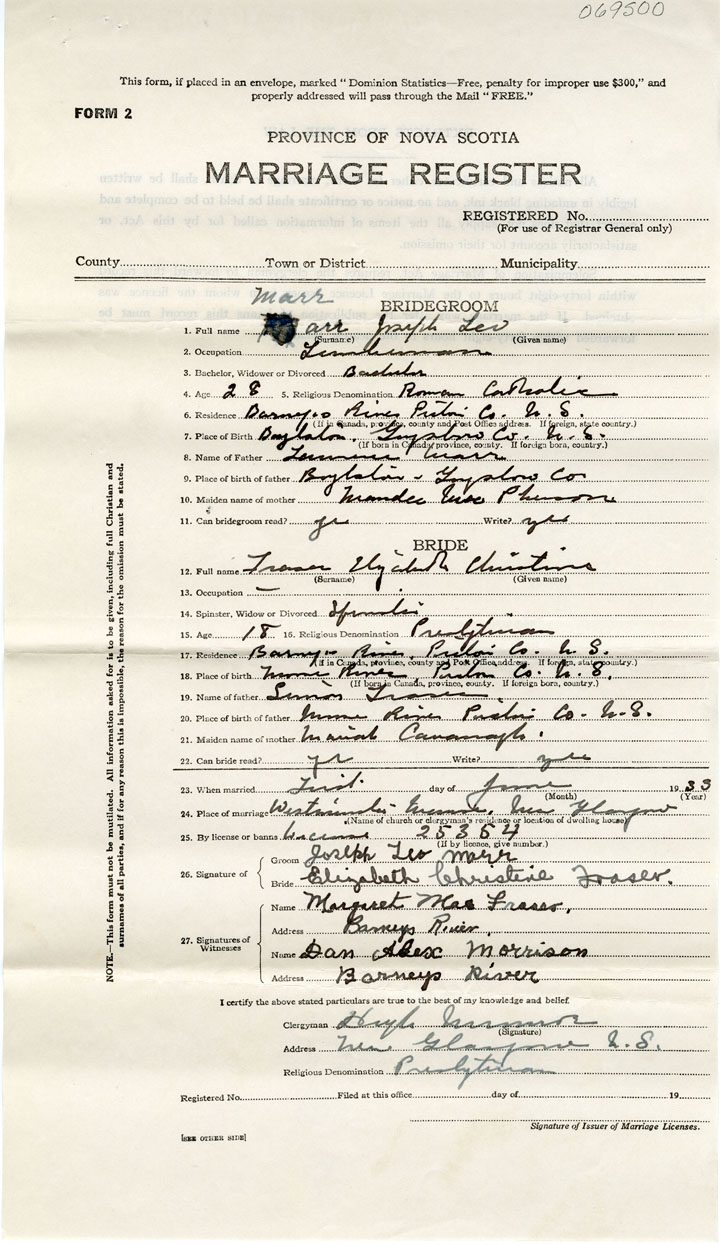 069500
This form, if placed in an envelope, marked "Dominion Statistics—Free, penalty for improper use $300," and
properly addressed will pass through the Mail "FREE."
FORM 2
PROVINCE OF NOVA SCOTIA
MARRIAGE REGISTER
REGISTERED No.
(For use of Registrar General only)
County Town or District Municipality
Marr
BRIDEGROOM
1. Full name Marr Joseph Leo
(Surname) (Given name)
2. Occupation Lumberman
3. Bachelor, Widower or Divorced Bachelor
4. Age 28 5. Religious Denomination Roman Catholic
6. Residence Barneys River Pictou Co. N. S.
(If in Canada, province, county and Post Office address. If foreign, state country.)
7. Place of Birth Boylston, Guysboro Co. N. S.
(If born in Canada, province, county. If foreign born, country.)
8. Name of Father Marr
9. Place of birth of father Boylston - Guysboro Co
10. Maiden name of mother Mac Pherson
11. Can bridegroom read? yes Write? yes
BRIDE
12. Full name Fraser Elizabeth Christine
(Surname) (Given name)
13. Occupation —
14. Spinster, Widow or Divorced Spinster
15. Age 18 16. Religious Denomination Presbyterian
17. Residence Barneys River, Pictou Co. N. S.
(If in Canada, province, county and Post Office address. If foreign, state country.)
18. Place of Birth River, Pictou Co. N. S.
(If born in Canada, province, county. If foreign born, country.)
19. Name of father Simon Fraser
20. Place of birth of father River Pictou Co. N. S.
21. Maiden name of mother Mariah Cavanagh.
22. Can bride read? yes Write? yes
23. When married First day of June 1933
(Month) (Year)
24. Place of marriage Westminster Manse, New Glasgow
(Name of church or clergyman's residence or location of dwelling house)
25. By license or banns License 25354
(If by licence, give number.)
26. Signature of
Groom Joseph Leo Marr
Bride Elizabeth Christine Fraser.
27. Signatures of Witnesses
Name Margaret Mae Fraser,
Address Barneys River,
Name Dan Alex Morrison
Address Barneys River
I certify the above stated particulars are true to the best of my knowledge and belief.
Clergyman Hugh
(Signature)
Address New Glasgow N. S.
Religious Denomination Presbyterian
Registered No. Filed at this office day of 19
Signature of Issuer of Marriage Licenses.
[SEE OTHER SIDE]
NOTE.—This form must not be mutilated. All information asked for is to be given, including full Christian and
surnames of all parties, and if for any reason this is impossible, the reason for the omission must be stated.